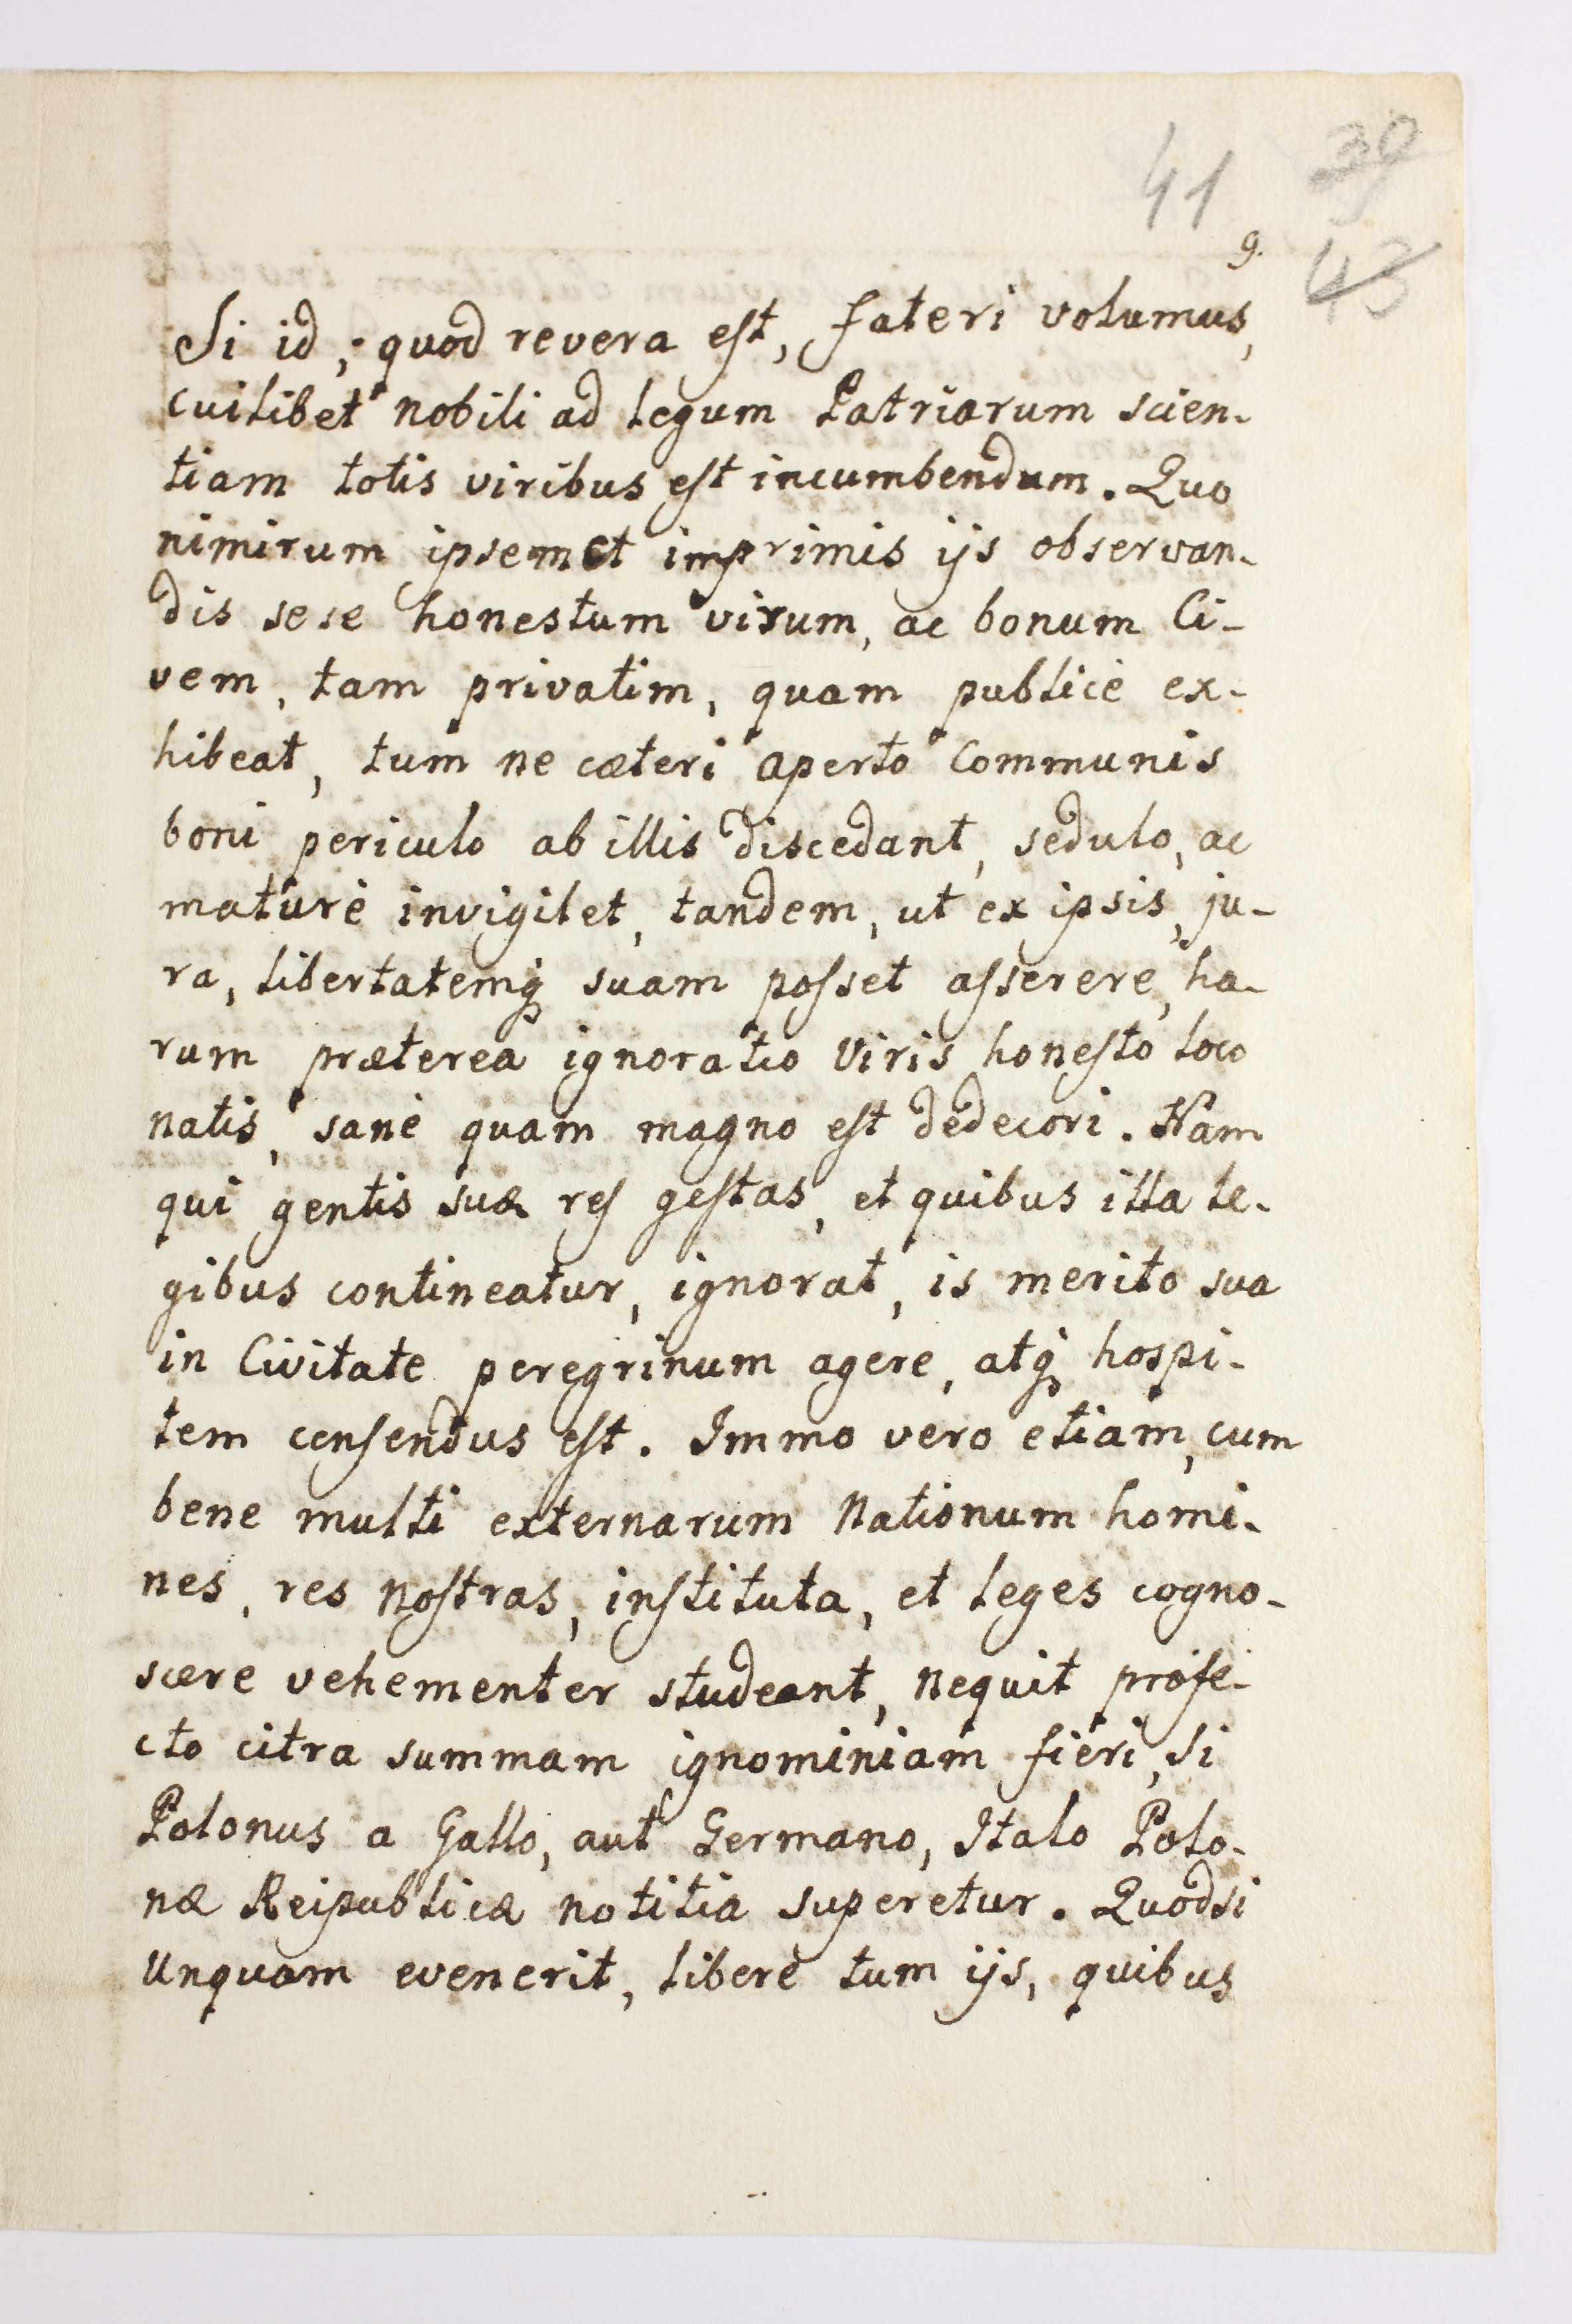 41
39
43
9.
Si id, quod revera est, fateri volumus,
cuilibet nobili ad legum Patriarum scien-
tiam totis viribus est incumbendum. Quo
nimirum ipsemet imprimis ijs observan-
dis sese honestum virum, ac bonum Ci-
vem, tam privatim, quam publicè ex-
hibeat, tum ne cæteri aperto Communis
boni periculo ab illis discedant, sedulo, ac
maturè invigilet, tandem, ut ex ipsis, ju-
ra, libertatemq; suam posset asserere, ha-
rum præterea ignoratio Viris honesto loco
natis, sanè quam magno est dedecori. Nam
qui gentis suæ res gestas, et quibus illa le-
gibus contineatur, ignorat, is merito sua
in Civitate peregrinum agere, atq; hospi-
tem censendus est. Immo vero etiam, cum
bene multi externarum Nationum homi-
nes, res nostras, instituta, et leges cogno-
scere vehementer studeant, nequit profe-
cto citra summam ignominiam fieri, si
Polonus a Gallo, aut Germano, Italo Polo-
næ Reipublicæ notitia superetur. Quodsi
unquam evenerit, liberè tum ijs, quibus